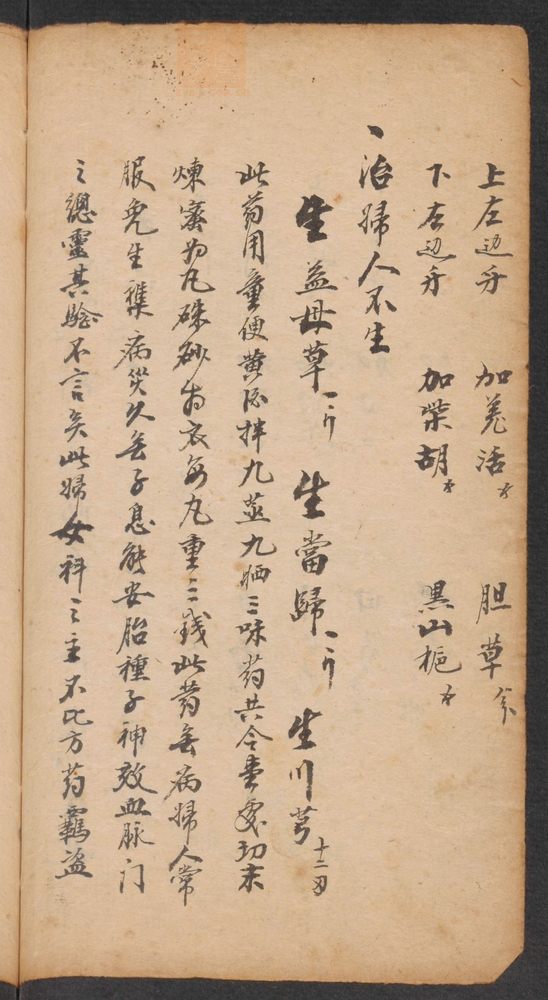 上左边牙 加羌活 胆草
下左边牙 加柴胡 黑山梔
丶治婦人不生
生益母草一斤 生當歸一斤 生川芎十二刄
此葯用童便黄酒拌九蒸九晒三味葯共合壹處切末
煉蜜为丸硃砂为衣每丸重三錢此葯無病婦人常
服免生襍病災久無子息能安胎種子神效血脉门
之總靈其驗不言矣此婦女科之主不比方葯覊盜